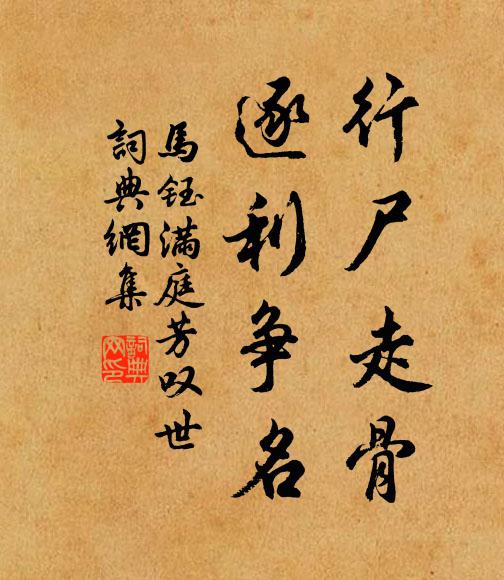 行尸走骨
逐利争名
馬鈺满庭芳叹世
詞典網集
詞典网印